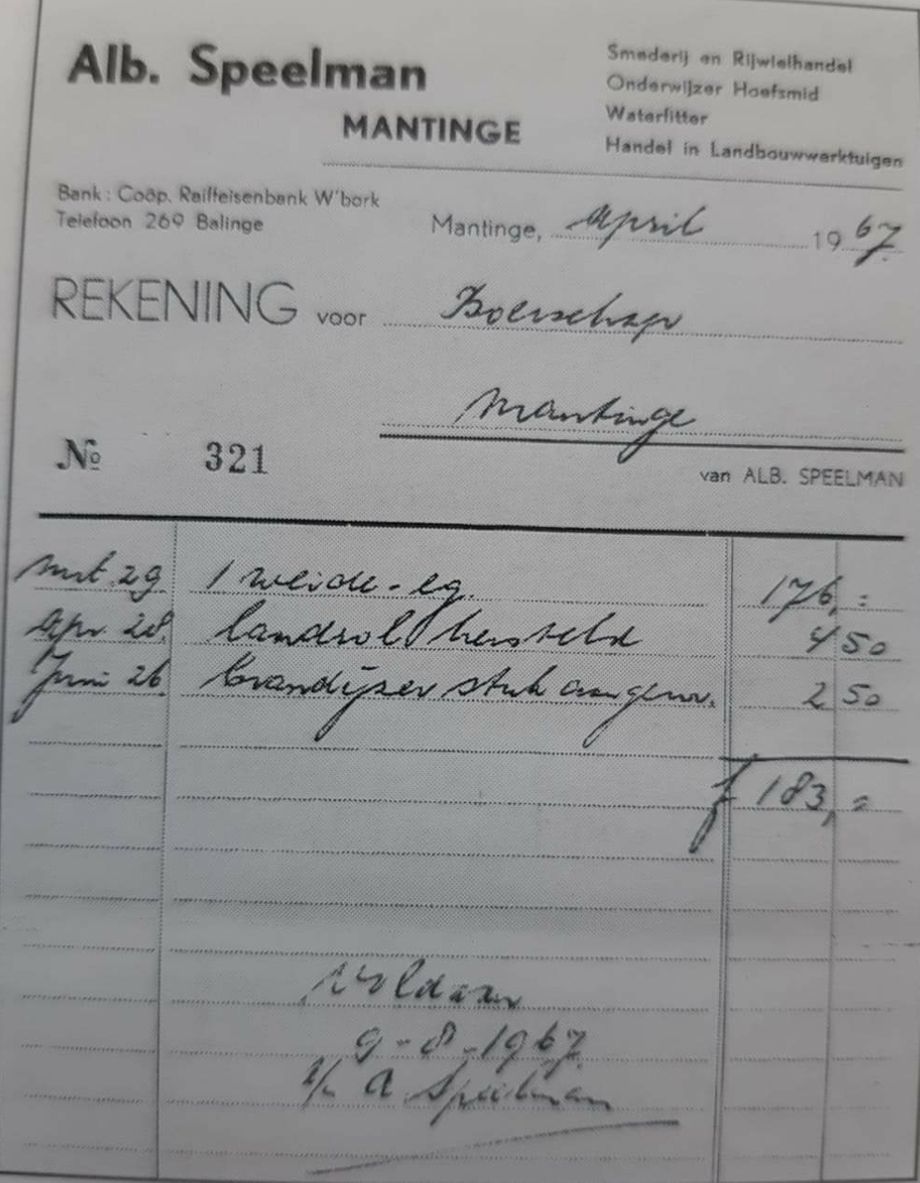 Alb. Speelman
MANTINGE
Smederij en Rijwielhandel
Onderwijzer Hoefsmid
Waterfitter
Handel in Landbouwwerktuigen
Bank: Coöp. Raiffeisenbank W'bork
Telefoon 269 Balinge
Mantinge, April 1967.
REKENING voor Boerschap
Mantinge
№ 321
van ALB. SPEELMAN
Mrt. 29 1 weide-eg. 176,=
Apr. 28 landrol hersteld 4 50
Juni 26 brandijzer stuk aangew. 2 50
f 183,=
Voldaan
9-8-1967.
A Speelman